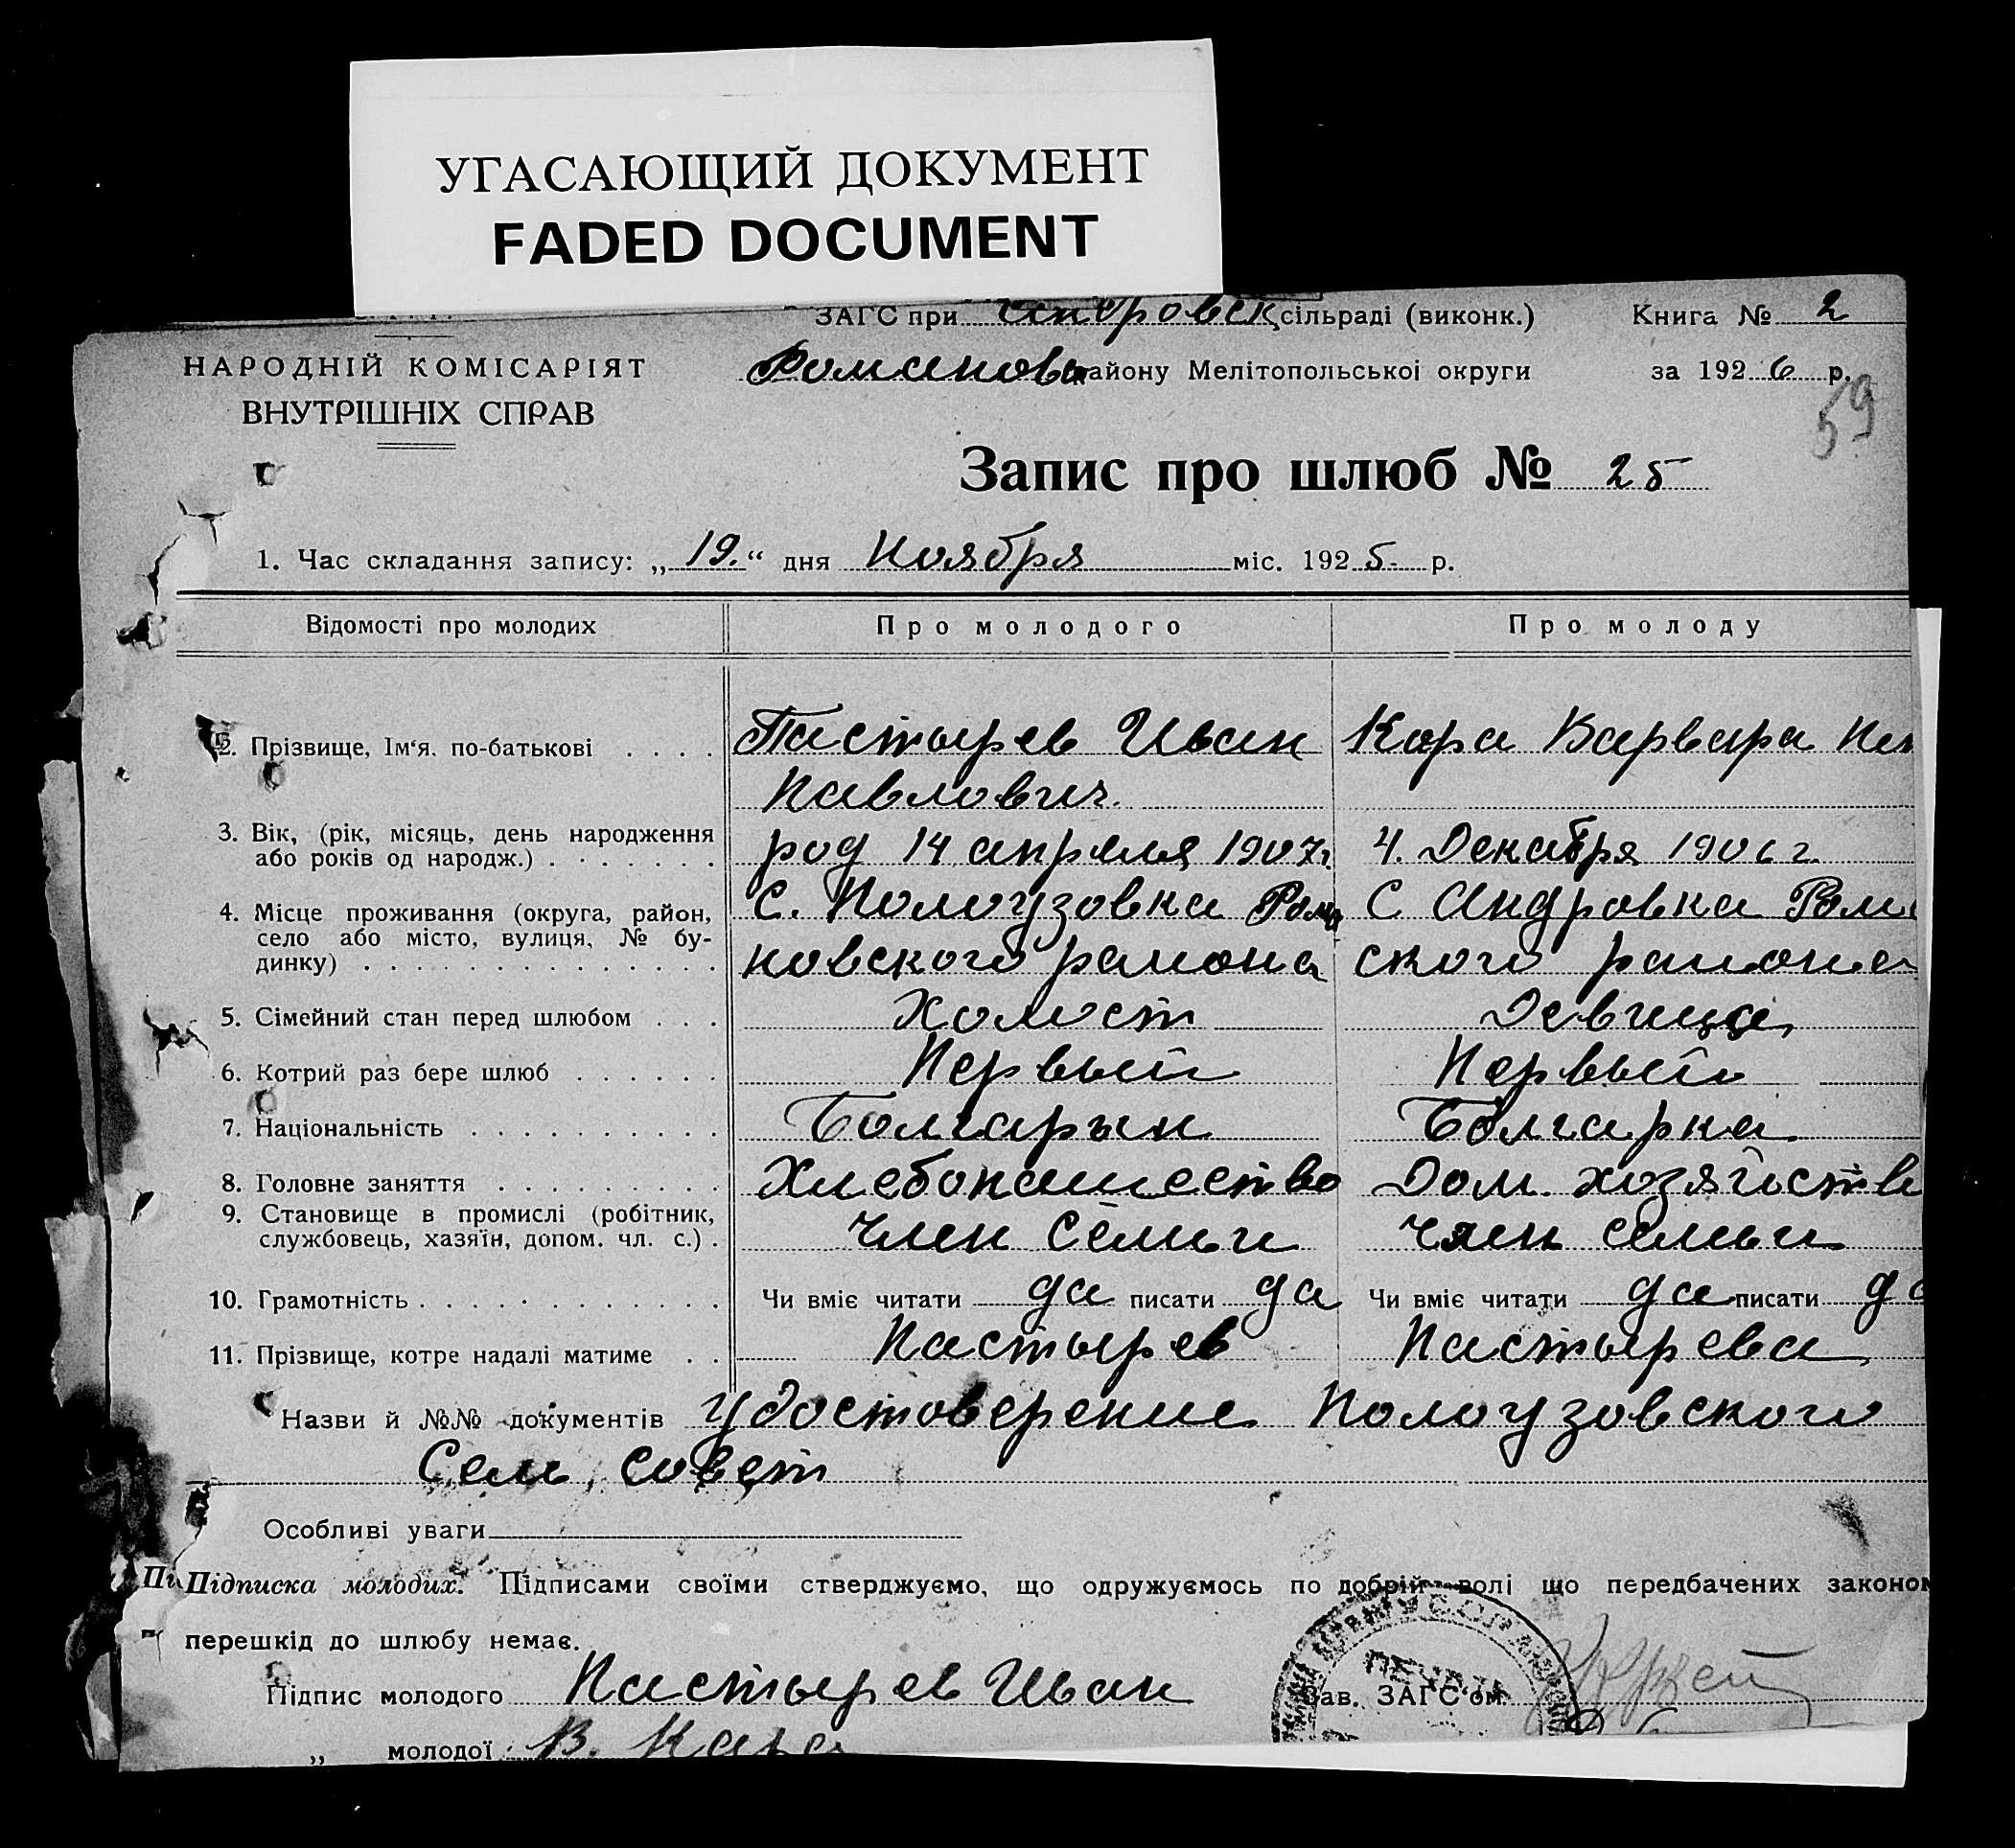 УГАСАЮЩИЙ ДОКУМЕНТ
FADED DOCUMENT
ЗАГС при Андровск сільраді (виконк.) Книга № 2
НАРОДНІЙ КОМІСАРІЯТ
ВНУТРІШНІХ СПРАВ
Романовск району Мелітопольської округи за 1926 р.
59
Запис про шлюб № 25
1. Час складання запису: „19.“ дня Ноября міс. 1925. р.
Відомості про молодих Про молодого Про молоду
2. Прізвище, Ім‘я. по-батькові . . . . Пастырев Иван Кара Варвара
Павлович.
3. Вік, (рік, місяць, день народження
або років од народж.) . . . . . . . род 14 апреля 1907г. 4. Декабря 1906 г.
4. Місце проживання (округа, район,
село або місто, вулиця, № бу-
динку) . . . . . . . . . . . . . . .
С. Пологузовка Рома С. Андровка Рома
новского района ского района
5. Сімейний стан перед шлюбом . . . Холост Девица
6. Котрий раз бере шлюб . . . . . . Первый Первый
7. Національність . . . . . . . . . . Болгарын Болгарка
8. Головне заняття . . . . . . . . . Хлебопашество Дом. хозяйств
9. Становище в промислі (робітник,
службовець, хазяїн, допом. чл. с.) . член Семьи член семьи
10. Грамотність . . . . . . . . . . . . Чи вміє читати да писати да Чи вміє читати да писати да
11. Прізвище, котре надалі матиме . . Пастырев Пастырева
Назви й №№ документів Удостоверение Пологузовского
Сель совет
Особливі уваги
Підписка молодих. Підписами своїми стверджуємо, що одружуємось по добрій волі що передбачених законом
перешкід до шлюбу немає.
Підпис молодого Пастырев Иван Зав. ЗАГС‘ом
„ молодої В. Кара
ПЕЧАТЬ